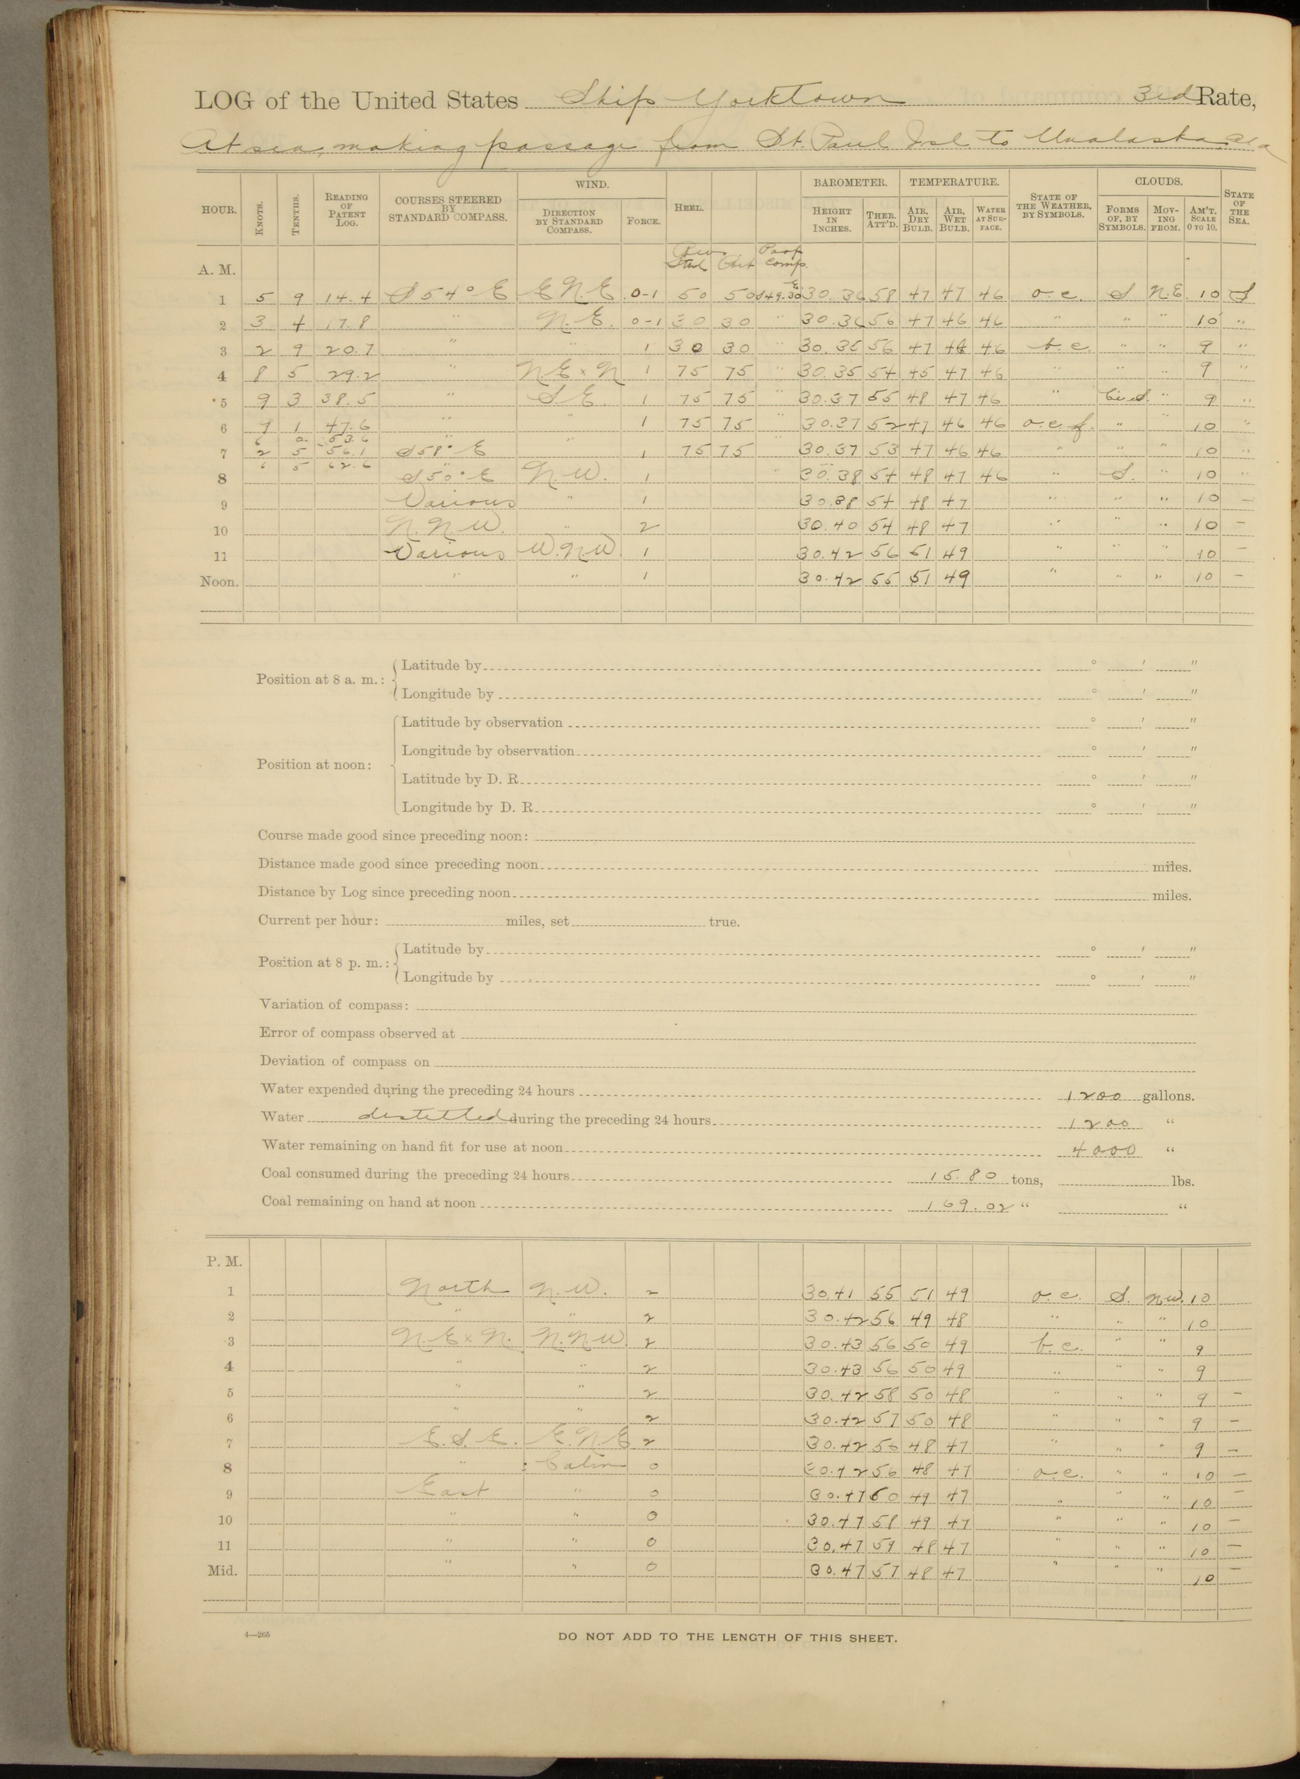 LOG of the United States Ship Yorktown 3rd Rate,
At sea, making passage from St. Paul Isl to Unalaska
HOUR. KNOTS. TENTHS. READING OF PATENT LOG. COURSES STEERED BY STANDARD COMPASS. WIND. DIRECTION BY STANDARD COMPASS. FORCE. HEEL. BAROMETER. HEIGHT IN INCHES. THER. ATT'D. TEMPERATURE. AIR, DRY BULB. AIR, WET BULB. WATER AT SURFACE. STATE OF THE WEATHER, BY SYMBOLS. CLOUDS. FORMS OF, BY SYMBOLS. MOVING FROM. AM'T. SCALE 0 TO 10. STATE OF THE SEA.
A. M. Comp.
1 5 9 14.4 S 54° E E N E 0-1 50 50 30.36 58 47 47 46 o.c. S N E 10 S
2 3 4 17.8 " N.E. 0-1 30 30 " 30.36 56 47 46 46 " " " 10 "
3 2 9 20.7 " " 1 30 30 " 30.36 56 47 46 46 b.c. " " 9 "
4 8 5 29.2 " N E x N 1 75 75 " 30.35 54 45 47 46 " " " 9 "
5 9 3 38.5 " S E. 1 75 75 " 30.37 55 48 47 46 " Ci S. " 9 "
6 9 1 47.6 " " 1 75 75 30.37 52 47 46 46 o.c.f. " " 10 "
6 0 53.6
7 2 5 56.1 S 58° E " 1 75 75 30.37 53 47 46 46 " " " 10 "
6 5 62.6
8 S 50° E N.W. 1 30.38 54 48 47 46 " S. " 10 "
9 Various " 1 30.38 54 48 47 " " " 10 -
10 N.N.W. " 2 30.40 54 48 47 " " " 10 -
11 Various W.N.W. 1 30.42 56 51 49 " " " 10 -
Noon. " " 1 30.42 55 51 49 " " " 10 -
Position at 8 a. m.: Latitude by ° ' "
Longitude by ° ' "
Position at noon: Latitude by observation ° ' "
Longitude by observation ° ' "
Latitude by D. R. ° ' "
Longitude by D. R. ° ' "
Course made good since preceding noon:
Distance made good since preceding noon miles.
Distance by Log since preceding noon miles.
Current per hour: miles, set true.
Position at 8 p. m.: Latitude by ° ' "
Longitude by ° ' "
Variation of compass:
Error of compass observed at
Deviation of compass on
Water expended during the preceding 24 hours 1200 gallons.
Water distilled during the preceding 24 hours 1200 "
Water remaining on hand fit for use at noon 4000 "
Coal consumed during the preceding 24 hours 15.80 tons, lbs.
Coal remaining on hand at noon 169.02 " "
P. M.
1 North N.W. 2 30.41 55 51 49 o.c. S. N.W. 10
2 " " 2 30.42 56 49 48 " " " 10
3 N E x N. N.N.W. 2 30.43 56 50 49 b.c. " " 9
4 " " 2 30.43 56 50 49 " " " 9
5 " " 2 30.42 58 50 48 " " " 9 -
6 " " 2 30.42 57 50 48 " " " 9 -
7 E.S.E. E.N.E 2 30.42 56 48 47 " " " 9 -
8 " Calm 0 30.42 56 48 47 o.c. " " 10 -
9 East " 0 30.47 60 49 47 " " " 10 -
10 " " 0 30.47 58 49 47 " " " 10 -
11 " " 0 30.47 59 48 47 " " " 10 -
Mid. " " 0 30.47 57 48 47 " " " 10 -
4—265
DO NOT ADD TO THE LENGTH OF THIS SHEET.